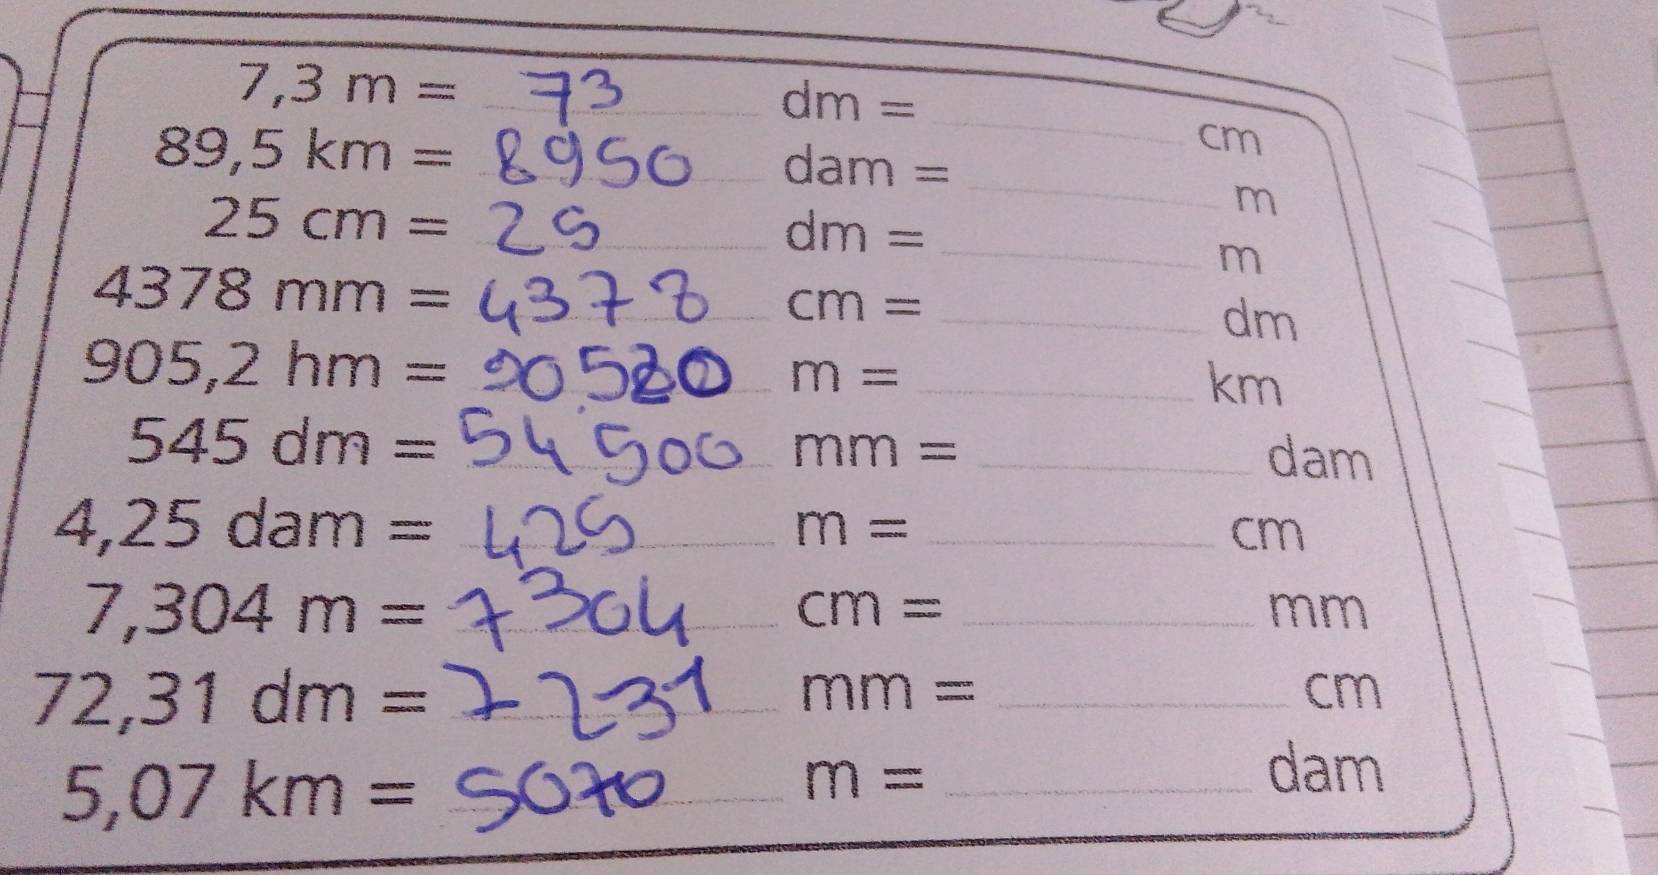 7,3 m = 73 dm = cm
89,5 km = 8950 dam = m
25 cm = 25 dm = m
4378 mm = 4378 cm = dm
905,2 hm = 90520 m = km
545 dm = 54500 mm = dam
4,25 dam = 425 m = cm
7,304 m = 7304 cm = mm
72,31 dm = 7231 mm = cm
5,07 km = 5070 m = dam